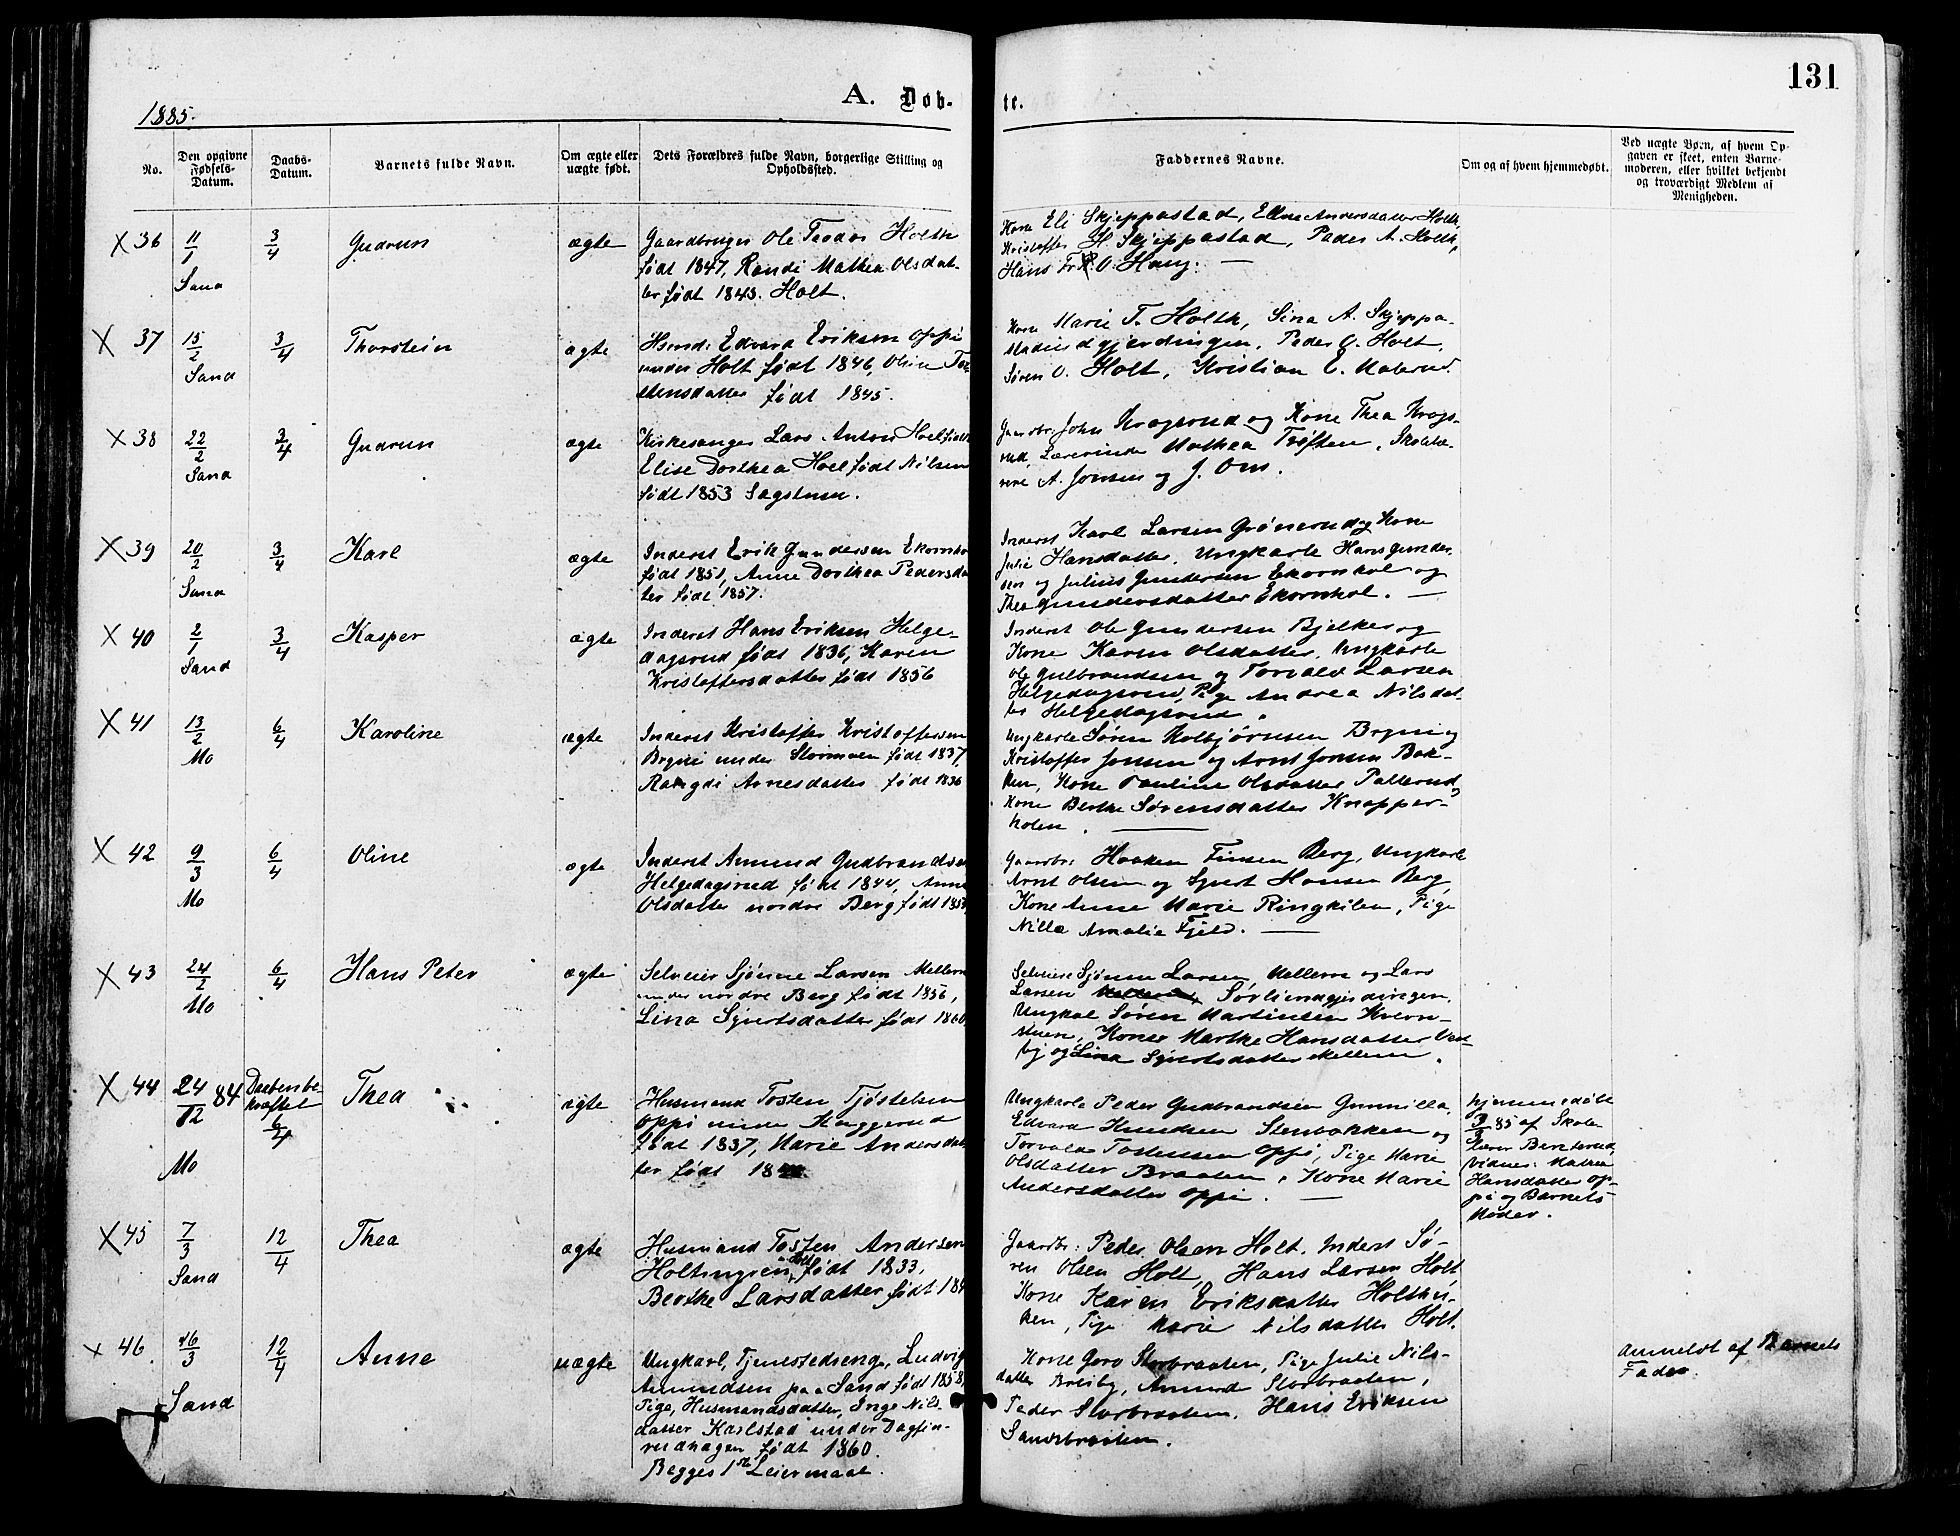 1885.
A. Døb-
te.
131
No.
Den opgivne Fødsels-Datum.
Daabs-Datum.
Barnets fulde Navn.
Om ægte eller uægte født.
Dets Forældres fulde Navn, borgerlige Stilling og Opholdssted.
Faddernes Navne.
Om og af hvem hjemmedøbt.
Ved uægte Børn, af hvem Opgaven er skeet, enten Barnemoderen, eller hvilket bekjendt og troværdigt Medlem af Menigheden.
X 36 11/1 Sand 3/4 Gudrun ægte
Gaardbruger Ole Teodor Holth
født 1847, Randi Mathea Olsdat-
ter født 1843. Holt.
Kone Eli Skjeppastad, Ellene Andersdatter Holth,
Kristoffer H. Skjeppastad, Peder A. Holth,
Hans Fr. O. Haug. —
X 37 15/2 Sand 3/4 Thorstein ægte
Husmd: Edvard Eriksen oppi
under Holt født 1846, Oline To-
stensdatter født 1845.
Kone Marie T. Holth, Sina A. Skjeppa-
stadeidgjerdingen, Peder O. Holt,
Søren O. Holt, Kristian E. Malerud.
X 38 22/2 Sand 3/4 Gudrun ægte
Kirkesanger Lars Anton Hoel født
Elise Dorthea Hoel født Nilsen
født 1853 Sagstuen.
Gaardbr: John Krogsrud og Kone Thea Krogs-
rud, Lærerinde Mathea Trøften, Skolelæ-
rere A. Jonsen og J. Om.
X 39 20/2 Sand 3/4 Karl ægte
Inderst Erik Gundersen Ekornho
født 1851, Anne Dorthea Pedersda
ter født 1857.
Inderst Karl Larsen Grønerud og Kone
Julie Hansdatter, Ungkarle Hans Gunder-
sen og Julius Gundersen Ekornhol og
Thea Gundersdatter Ekornhol. —
X 40 2/1 Sand 3/4 Kasper ægte
Inderst Hans Eriksen Helge-
dagsrud født 1836, Karen
Kristoffersdatter født 1856
Inderst Ole Gundersen Bjelker og
Kone Karen Olsdatter, Ungkarle
Ole Gulbrandsen og Torvald Larsen
Helgedagsrud, Pige Andrea Nilsdat-
ter Helgedagsrud.
X 41 13/2 Mo 6/4 Karoline ægte
Inderst Kristoffer Kristoffersen
Brynie under Stormoen født 1837,
Rangdi Arnesdatter født 1836
Ungkarle Søren Kolbjørnsen Bryni og
Kristoffer Jonsen og Arnt Jonsen Bak-
ken, Kone Pauline Olsdatter Pallerud,
Kone Berthe Sørensdatter Knapper-
holen. —
X 42 9/3 Mo 6/4 Oline ægte
Inderst Amund Gudbrandsen
Helgedagsrud født 1844, Anne
Olsdatter nordre Berg født 185
Gaardbr: Haaken Finsen Berg, Ungkarle
Arnt Olsen og Syvert Hansen Berg,
Kone Anne Marie Ringkilen, Pige
Nilla Amalie Fjeld. —
X 43 24/2 Mo 6/4 Hans Peter ægte
Selveier Sjønne Larsen Mellern
under nordre Berg født 1856,
Lina Syvertsdatter født 1860.
Selveiere Sjønne Larsen Mellern og Lars
Larsen Sørliendgjerdingen,
Ungkal Søren Martinsen Kvern-
stuen, Koner Marthe Hansdatter Væst-
by og Lina Syvertsdatter Mellern.
X 44 24/12 84 Mo Daaben be-
kræftet 6/4 Thea ægte
Husmand Tosten Tjøstelsen
oppi under Haggerud
født 1837, Marie Andersdat
ter født 184
Ungkarle Peder Gudbrandsen Gunnilla,
Edvard Knudsen Stenbakken og
Torvald Tostensen oppi, Pige Marie
Olsdatter Braaten, Kone Marie
Andersdatter oppi. —
hjemmedøbt
3/3 85 af Skole-
lærer Benterud,
Vidner: Mathea
Hansdatter op-
pi og Barnets
Moder.
X 45 7/3 Sand 12/4 Thea ægte
Husmand Tosten Andersen
Holtingien u. Holt født 1833,
Berthe Larsdatter født 184
Gaardbr: Peder Olsen Holt. Inderst Sø-
ren Olsen Holt, Hans Larsen Holt
Kone Karen Eriksdatter Holthu-
ken, Pige Marie Nilsdatter Holt.
x 46 16/3 Sand 12/4 Anne uægte
Ungkarl, Tjenestedreng, Ludvig
Amundsen paa Sand født 1858,
Pige, Husmandsdatter, Inge Nils-
datter Karlstad under Dagfin-
rudhagen født 1860.
Begges 1ste Leiermaal.
Kone Goro Storbraaten, Pige Julie Nils-
datter Breiby, Amund Storbraaten,
Peder Storbraaten, Hans Eriksen
Sandsbraaten.
Anmeldt af Barnets
Fader.